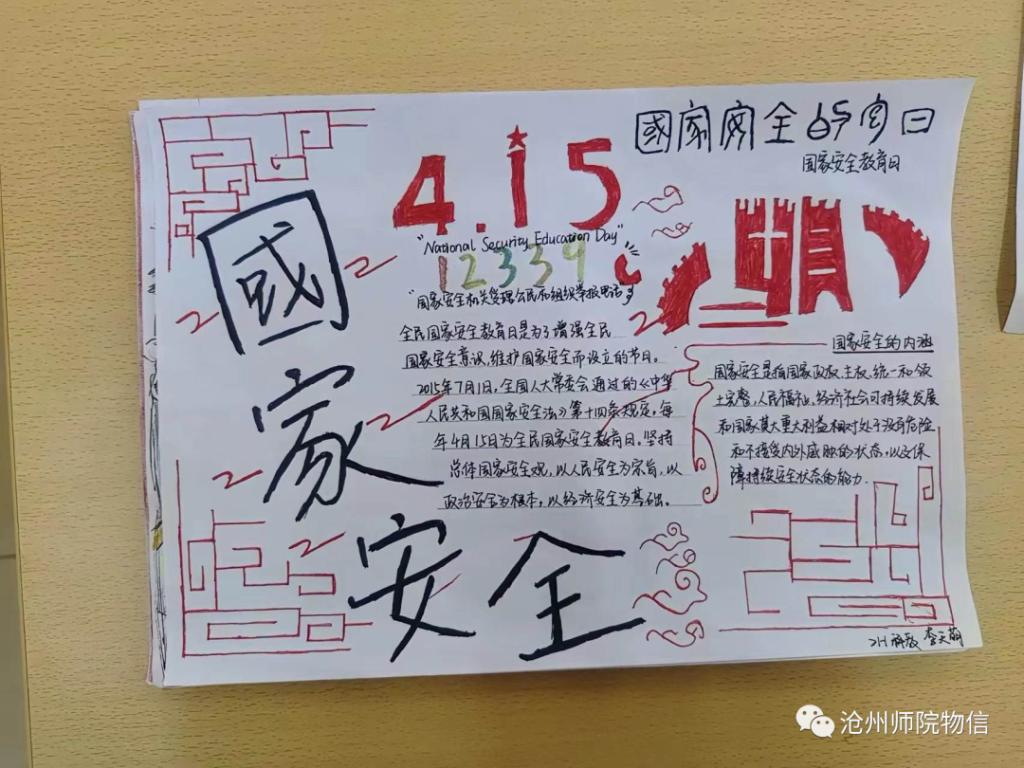 國家安全
4.15
國家安全教育日
国家安全教育日
"National Security Education Day"
12339
"国家安全机关受理公民和组织举报电话"
全民国家安全教育日是为了增强全民
国家安全意识,维护国家安全而设立的节日。
2015年7月1日,全国人大常委会通过的《中华
人民共和国国家安全法》第十四条规定,每
年4月15日为全民国家安全教育日。坚持
总体国家安全观,以人民安全为宗旨,以
政治安全为根本,以经济安全为基础。
国家安全的内涵
国家安全是指国家政权、主权、统一和领
土完整、人民福祉、经济社会可持续发展
和国家其大重大利益相对处于没有危险
和不接受内外威胁的状态,以及保
障持续安全状态的能力.
沧州师院物信